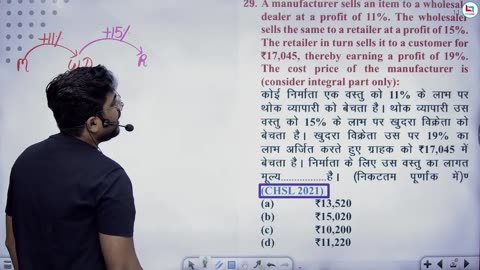 29. A manufacturer sells an item to a wholesale
dealer at a profit of 11%. The wholesaler
sells the same to a retailer at a profit of 15%.
The retailer in turn sells it to a customer for
₹17,045, thereby earning a profit of 19%.
The cost price of the manufacturer is
(consider integral part only):
कोई निर्माता एक वस्तु को 11% के लाभ पर
थोक व्यापारी को बेचता है। थोक व्यापारी उस
वस्तु को 15% के लाभ पर खुदरा विक्रेता को
बेचता है। खुदरा विक्रेता उस पर 19% का
लाभ अर्जित करते हुए ग्राहक को ₹17,045 में
बेचता है। निर्माता के लिए उस वस्तु का लागत
मूल्य..................है। (निकटतम पूर्णांक में)
(CHSL 2021)
(a) ₹13,520
(b) ₹15,020
(c) ₹10,200
(d) ₹11,220
+11% +15%
M WD R